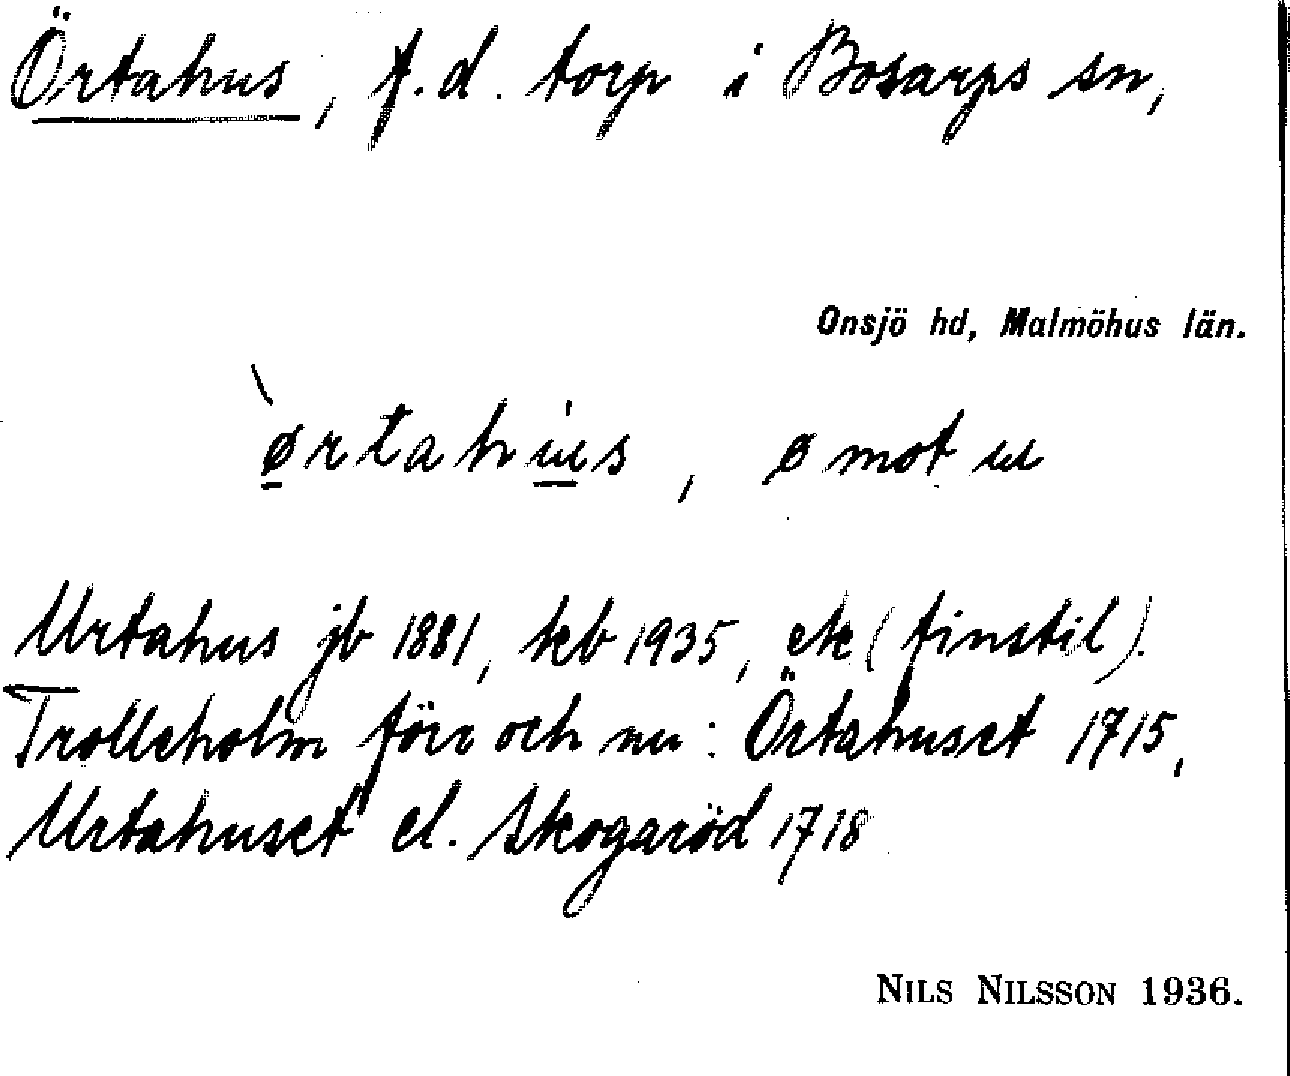 Örtahus, f.d. torp i Bosarps sn,
Onsjö hd, Malmöhus län.
`ørtahu̍s, ø mot u
Urtahus jb 1881, kb 1935, ek (finstil).
Trolleholm förr och nu: Örtahuset 1715,
Urtahuset el. Skogaröd 1718
NILS NILSSON 1936.